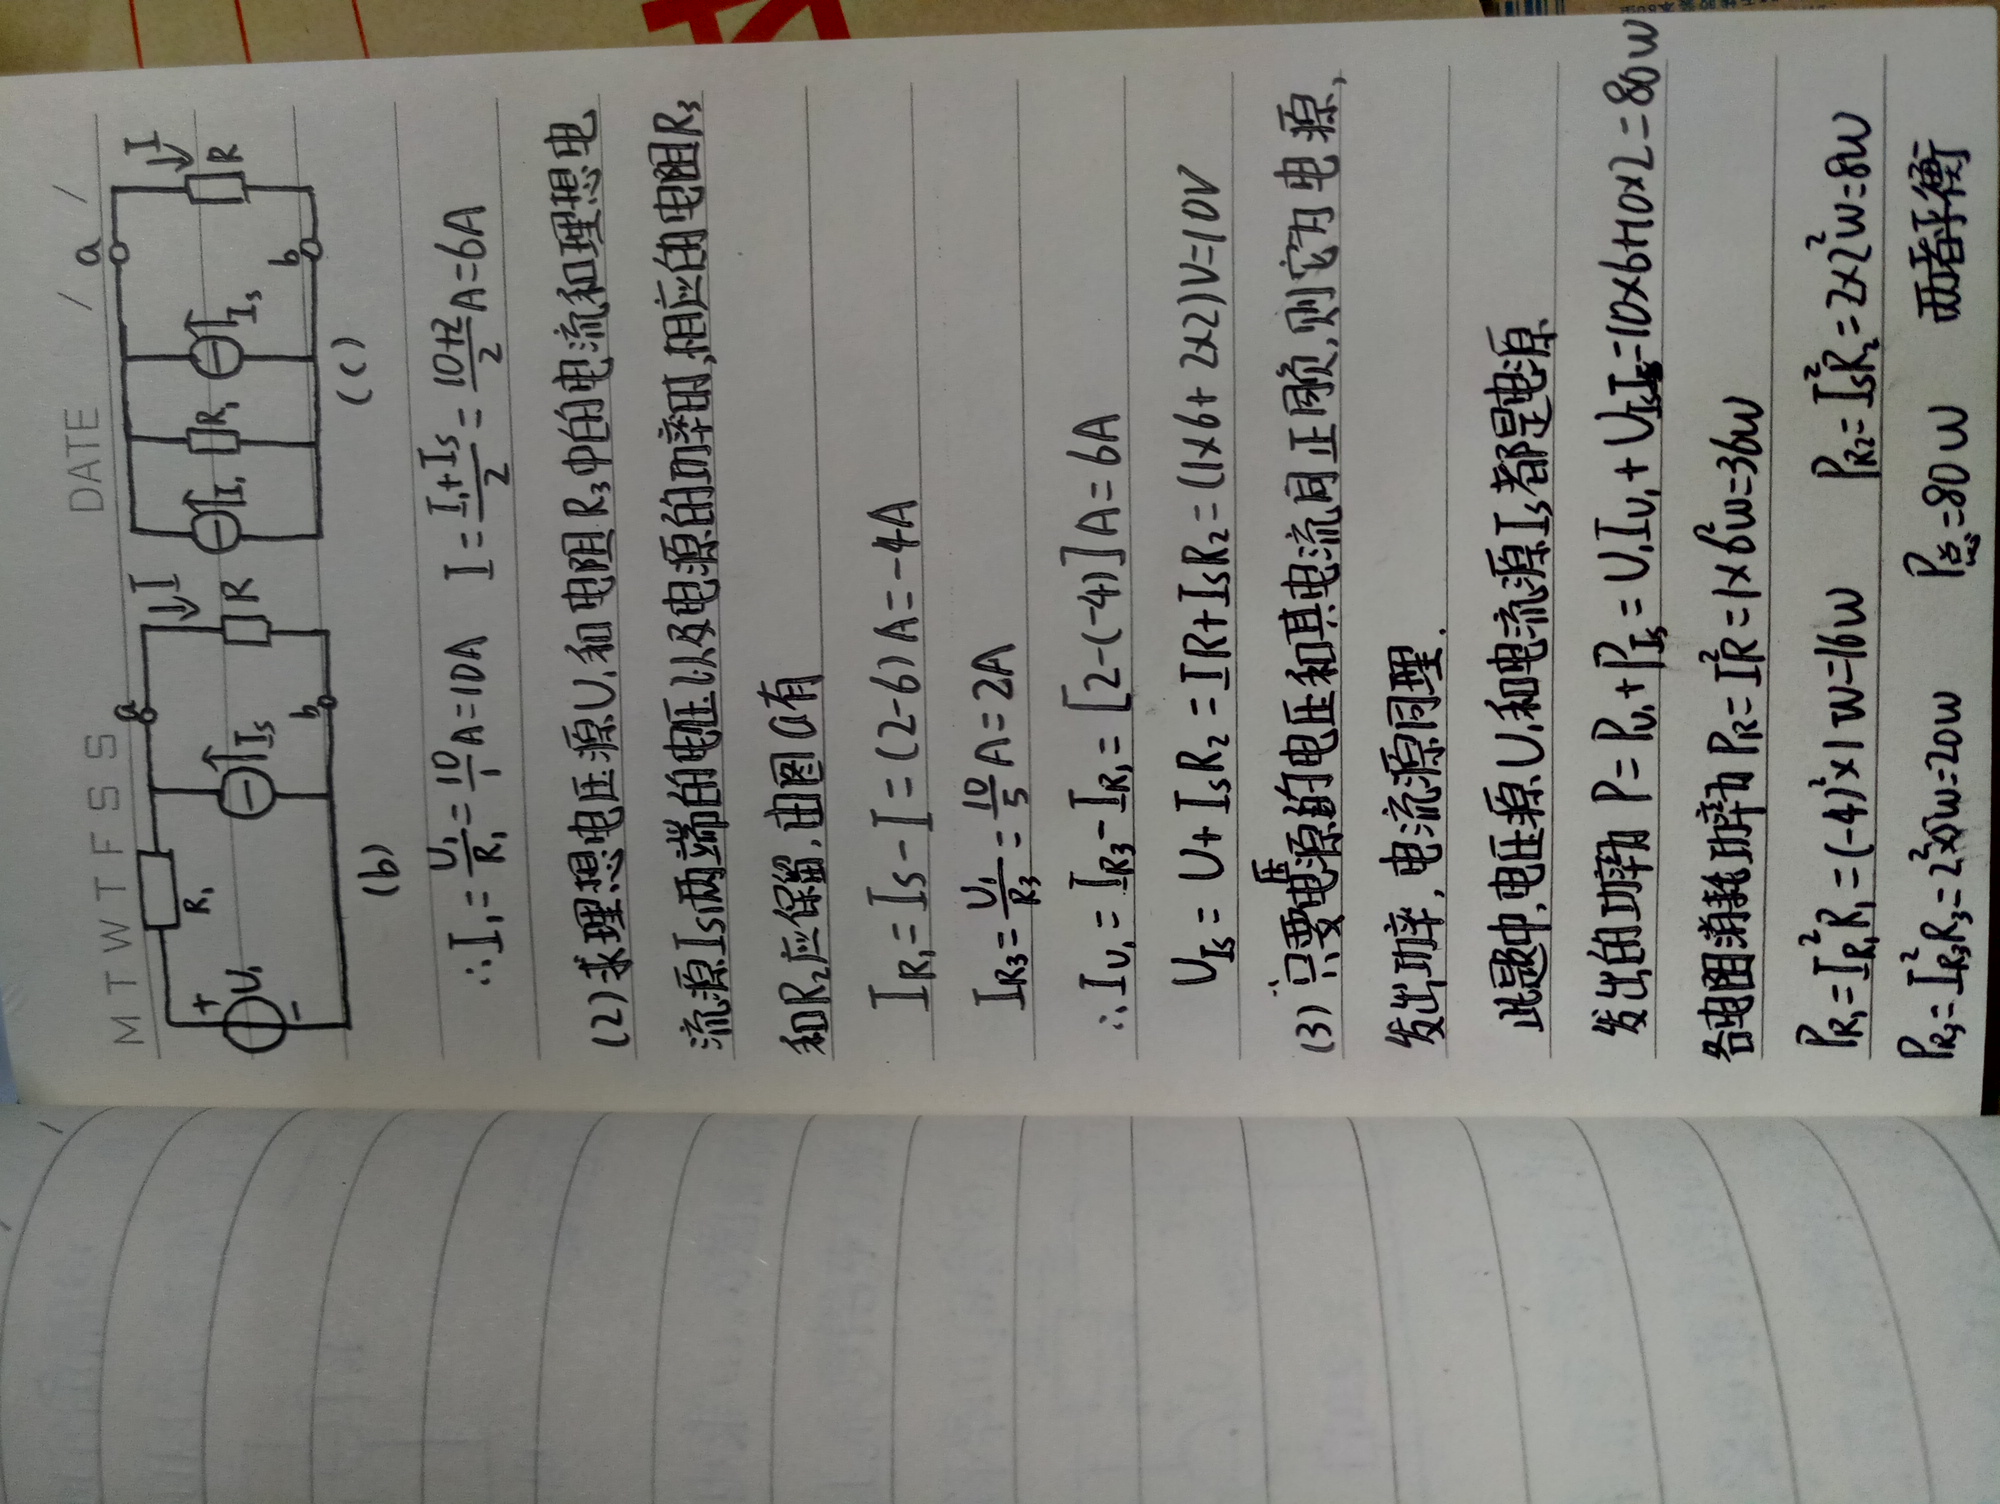 M T W T F S S DATE / /
a a
R₁ I I
+ U₁ - Iₛ R I₁ R₁ Iₛ R
b b
(b) (c)
∴I₁=U₁/R₁=10/1A=10A I=(I₁+Iₛ)/2=(10+2)/2A=6A
(2)求理想电压源U₁和电阻R₃中的电流和理想电
流源Iₛ两端的电压以及电源的功率时,相应的电阻R₃
和R₂应保留,由图a有
I_R₁=Iₛ-I=(2-6)A=-4A
I_R₃=U₁/R₃=10/5A=2A
∴I_U₁=I_R₃-I_R₁=[2-(-4)]A=6A
U_Iₛ=U+IₛR₂=IR+IₛR₂=(1×6+2×2)V=10V
(3)只要电压源的电压和其电流同正同负,则它为电源,
发出功率,电流源同理.
此题中,电压源U₁和电流源Iₛ都是电源
发出的功率为P=P_U₁+P_Iₛ=U₁I_U₁+U_IₛIₛ=10×6+10×2=80W
各电阻消耗功率为P_R=I²R=1×6²W=36W
P_R₁=I_R₁²R₁=(-4)²×1W=16W P_R₂=Iₛ²R₂=2×2²W=8W
P_R₃=I_R₃²R₃=2²×5W=20W P总=80W 两者平衡